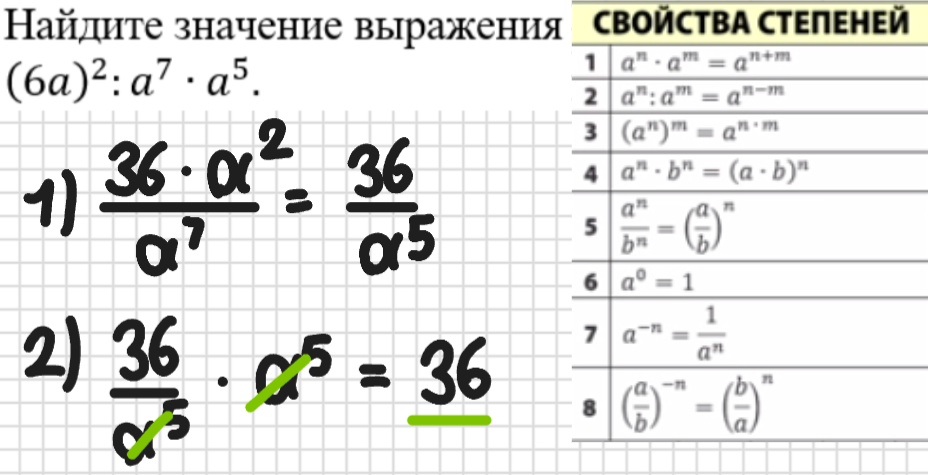 Найдите значение выражения
(6a)²: a⁷ · a⁵.
1) 36 · a² / a⁷ = 36 / a⁵
2) 36 / a⁵ · a⁵ = 36
СВОЙСТВА СТЕПЕНЕЙ
1 aⁿ · aᵐ = aⁿ⁺ᵐ
2 aⁿ: aᵐ = aⁿ⁻ᵐ
3 (aⁿ)ᵐ = aⁿ˙ᵐ
4 aⁿ · bⁿ = (a · b)ⁿ
5 aⁿ / bⁿ = (a / b)ⁿ
6 a⁰ = 1
7 a⁻ⁿ = 1 / aⁿ
8 (a / b)⁻ⁿ = (b / a)ⁿ